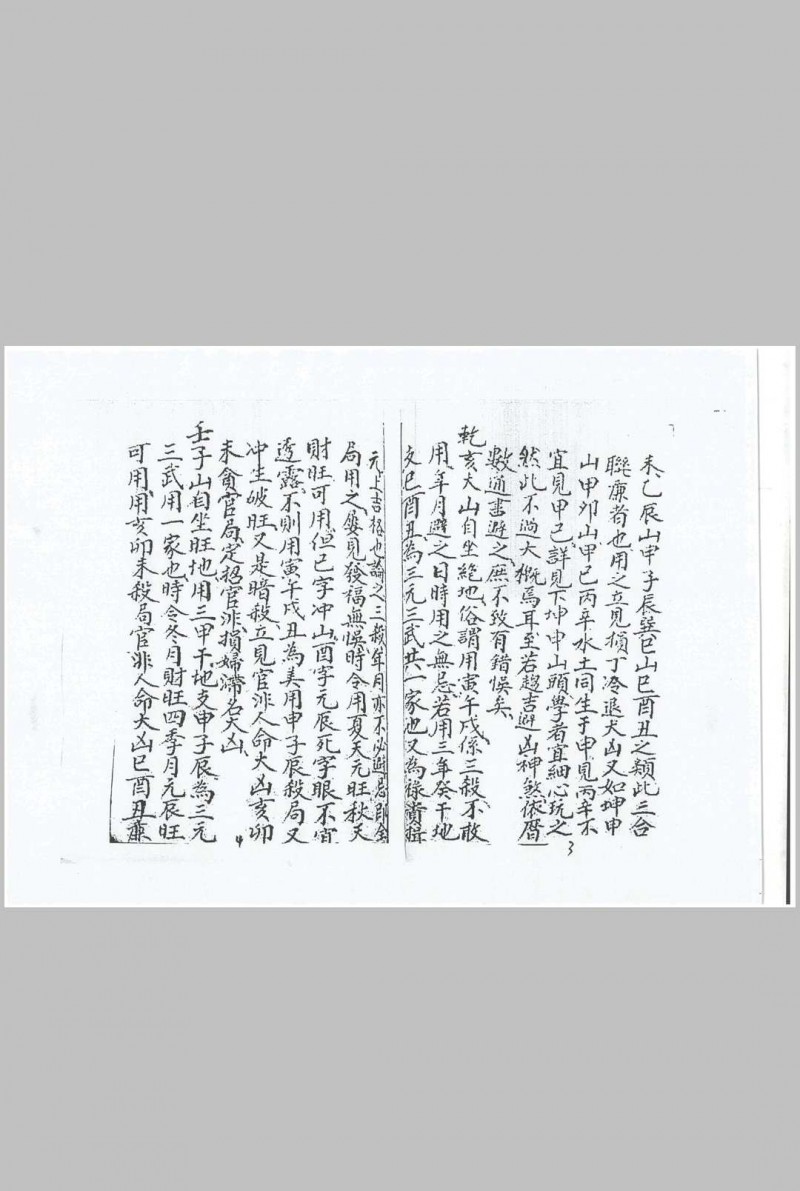 未乙辰山甲子辰巽巳山巳酉丑之類此三合
聫廉者也用之立見損丁冷退犬山又如坤申
山甲夘山甲己丙辛水土同生于申見丙辛不
宜見甲己詳見下坤申山頭學者宜細心玩之
然此不過大概焉耳至若趨吉避凶神煞依曆
數通書避之庶不致有錯悞矣
3
乾亥犬山自坐絶地俗謂用寅午戌係三殺不敢
用年月避之日時用之無忌若用三年癸干地
支巳酉丑為三元三武共一家也又為祿貴
元上吉格也論之三殺年月亦不必避忌則金
局用之屡見發福無悞時令用夏天元旺秋天
財旺可用但巳字冲山酉字元辰死字眼不宜
透露不則用寅午戌丑為美用申子辰殺局又
冲生破旺又是暗殺立見官非人命大凶亥卯
未貪官局定招官非損婦滯名大凶
4
壬子山自坐旺地用三甲干地支申子辰為三元
三武用一家也時令冬月財旺四季月元辰旺
可用用亥卯未殺局官非人命大凶巳酉丑廉